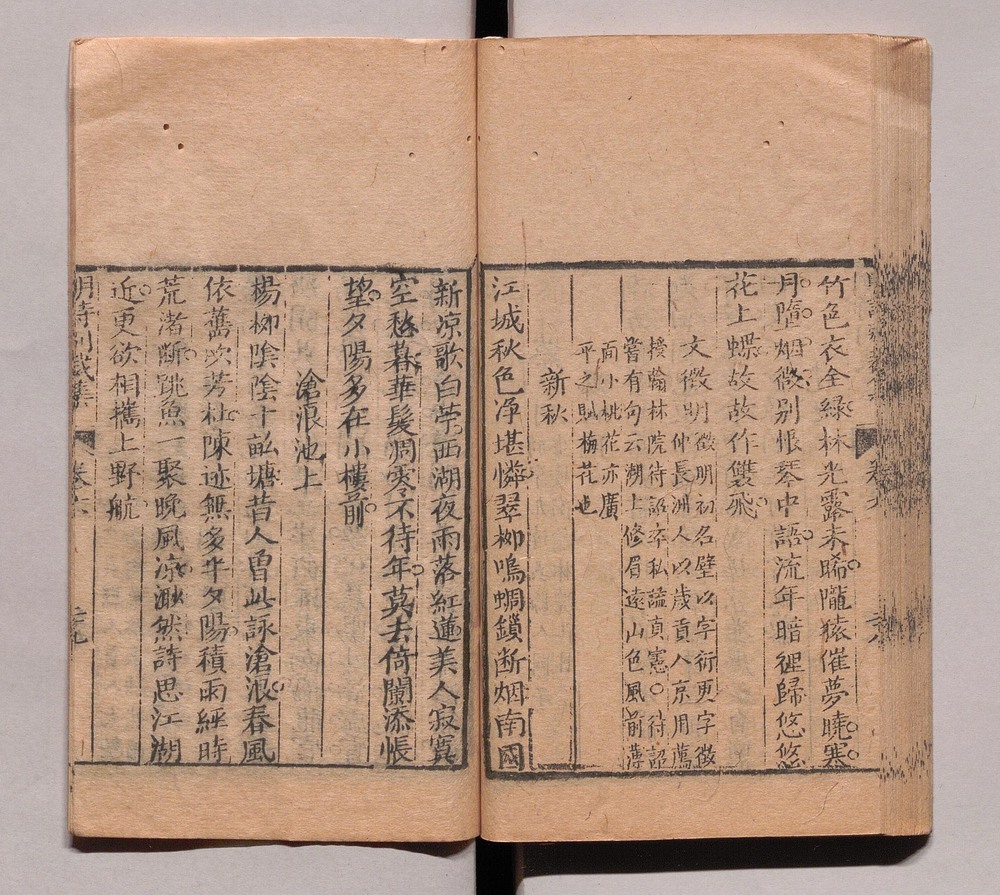 竹色衣全綠林光露未晞隴猿催夢曉寒
月墮烟微别恨琴中語流年暗裡歸悠悠
花上蝶故故作雙飛
文徵明
徵明初名壁以字行更字徵
仲長洲人以歲貢入京用薦
授翰林院待詔卒私諡貞憲○待詔
嘗有句云湖上修眉遠山色風前薄
面小桃花亦廣
平之賦梅花也
新秋
江城秋色净堪憐翠柳鳴蜩鎖断烟南國
新凉歌白苧西湖夜雨落紅蓮美人寂寞
空愁暮華髮凋零不待年莫去倚闌添悵
望夕陽多在小樓前
滄浪池上
楊柳陰陰十畝塘昔人曾此詠滄浪春風
依舊吹芳杜陳迹無多半夕陽積雨經時
荒渚斷跳魚一聚晚風凉渺然詩思江湖
近更欲相攜上野航
明詩別裁集
卷六
二十九